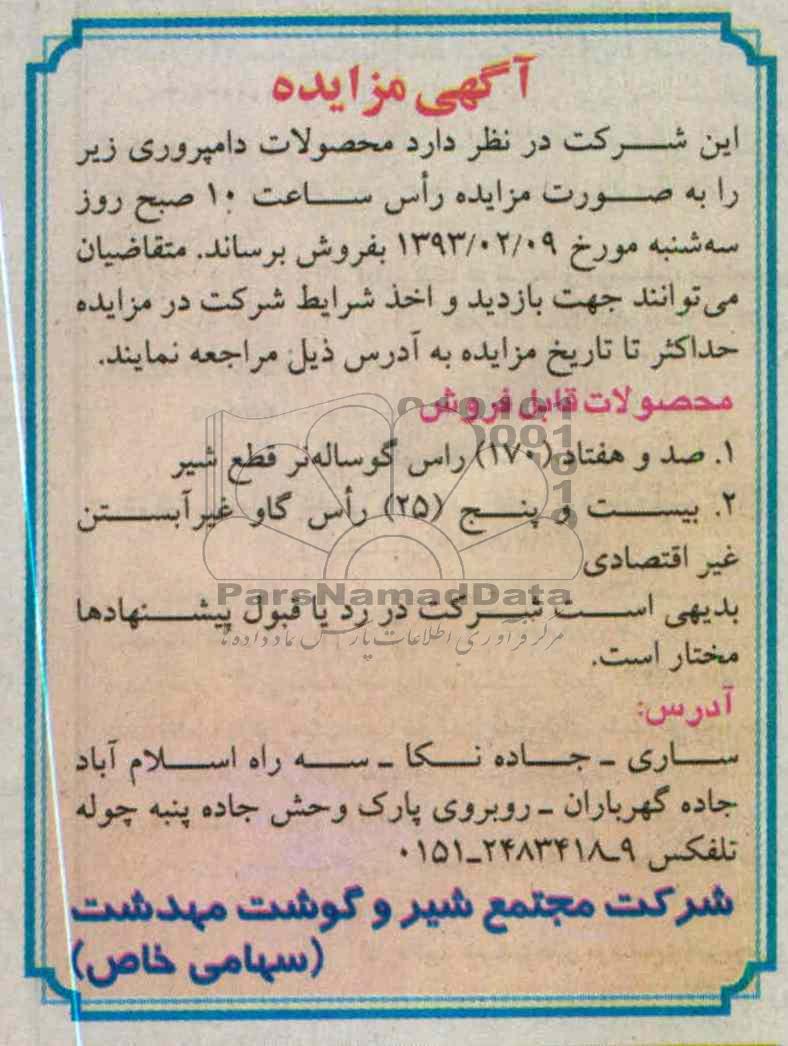 آگهی مزایده
این شرکت در نظر دارد محصولات دامپروری زیر
را به صورت مزایده رأس ساعت ۱۰ صبح روز
سه‌شنبه مورخ ۱۳۹۳/۰۲/۰۹ بفروش برساند. متقاضیان
می‌توانند جهت بازدید و اخذ شرایط شرکت در مزایده
حداکثر تا تاریخ مزایده به آدرس ذیل مراجعه نمایند.
محصولات قابل فروش
۱. صد و هفتاد (۱۷۰) راس گوساله‌نر قطع شیر
۲. بیست و پنج (۲۵) رأس گاو غیرآبستن
غیر اقتصادی
ParsNamadData
بدیهی است شرکت در رد یا قبول پیشنهادها
مرکز فرآوری اطلاعات پارس نماد داده‌ها
مختار است.
آدرس:
ساری ـ جاده نکا ـ سه راه اسلام آباد
جاده گهرباران ـ روبروی پارک وحش جاده پنبه چوله
تلفکس ۹ـ۲۴۸۳۴۱۸ـ۰۱۵۱
شرکت مجتمع شیر و گوشت مهدشت
(سهامی خاص)